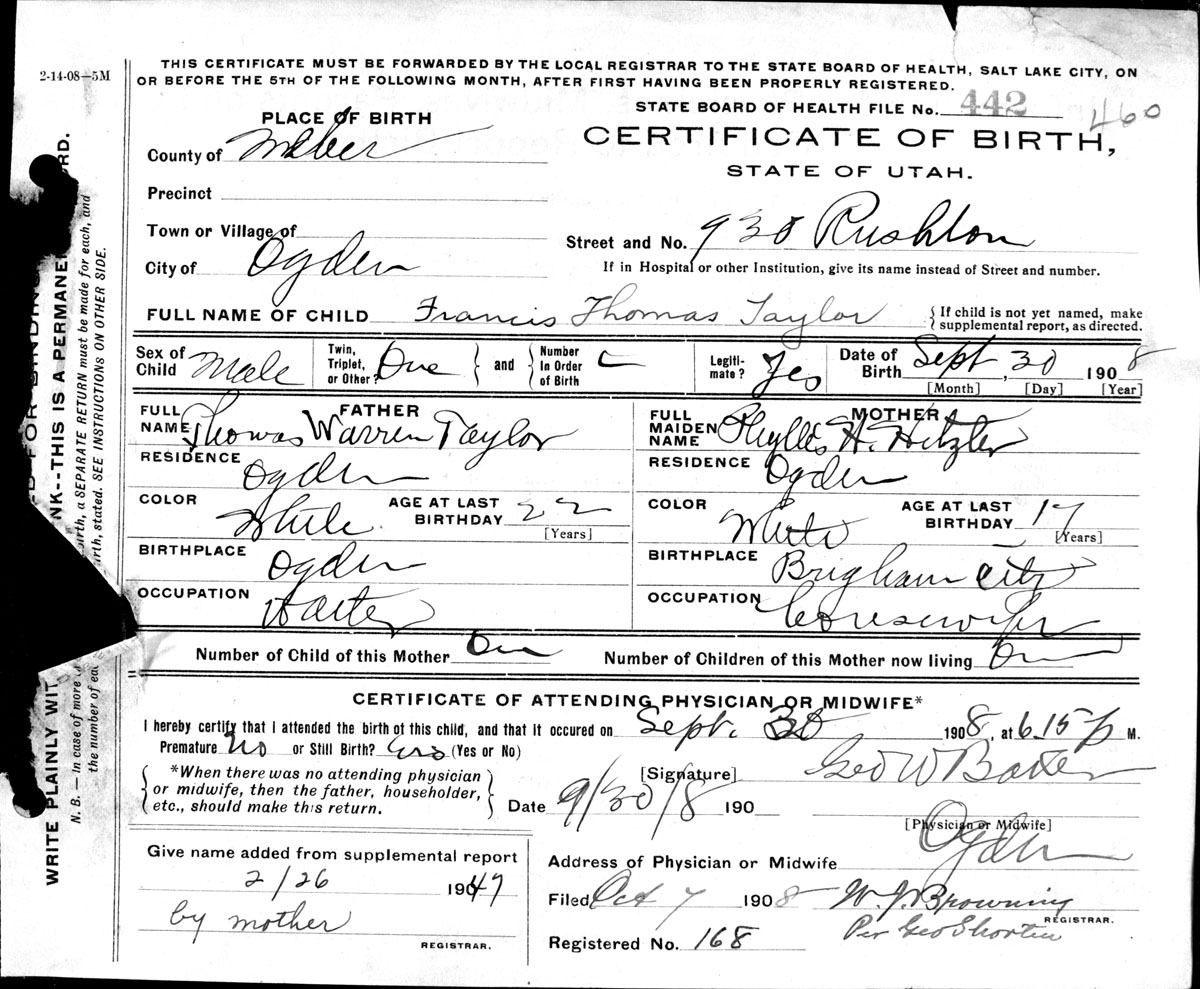 2-14-08—5M
THIS CERTIFICATE MUST BE FORWARDED BY THE LOCAL REGISTRAR TO THE STATE BOARD OF HEALTH, SALT LAKE CITY, ON
OR BEFORE THE 5TH OF THE FOLLOWING MONTH, AFTER FIRST HAVING BEEN PROPERLY REGISTERED.
STATE BOARD OF HEALTH FILE No. 442 460
PLACE OF BIRTH
CERTIFICATE OF BIRTH,
STATE OF UTAH.
County of Weber
Precinct
Town or Village of
City of Ogden
Street and No. 930 Rushton
If in Hospital or other Institution, give its name instead of Street and number.
FULL NAME OF CHILD Francis Thomas Taylor { If child is not yet named, make
supplemental report, as directed.
Sex of Child Male Twin, Triplet, or Other? One } and { Number In Order of Birth Legiti-mate? Yes Date of Birth Sept, 30 1908
[Month] [Day] [Year]
FATHER
FULL NAME Thomas Warren Taylor
RESIDENCE Ogden
COLOR White AGE AT LAST BIRTHDAY 22
[Years]
BIRTHPLACE Ogden
OCCUPATION Waiter
MOTHER
FULL MAIDEN NAME Phylles H. Hetzler
RESIDENCE Ogden
COLOR White AGE AT LAST BIRTHDAY 17
[Years]
BIRTHPLACE Brigham City
OCCUPATION Housewife
Number of Child of this Mother One Number of Children of this Mother now living One
CERTIFICATE OF ATTENDING PHYSICIAN OR MIDWIFE*
I hereby certify that I attended the birth of this child, and that it occured on Sept. 30 1908, at 6.15 p M.
Premature No or Still Birth? (Yes or No)
{ *When there was no attending physician
or midwife, then the father, householder,
etc., should make this return. }
[Signature] Geo W Baxter
Date 9/30/8 190
[Physician or Midwife]
Address of Physician or Midwife Ogden
Give name added from supplemental report
2/26 1947
by mother
REGISTRAR.
Filed Oct 7 1908 W. J. Browning
REGISTRAR.
Per Geo Shorten
Registered No. 168
WRITE PLAINLY WIT
NK---THIS IS A PERMANE
ORD.
D FOR BINDING
N. B. — In case of more
birth, a SEPARATE RETURN must be made for each, and
the number of ea
irth, stated. SEE INSTRUCTIONS ON OTHER SIDE.